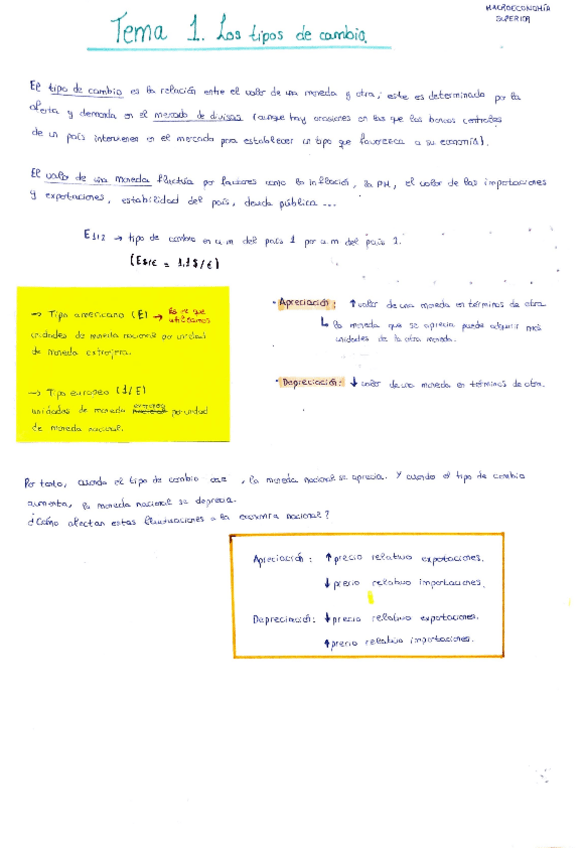 MACROECONOMÍA
SUPERIOR
Tema 1. Los tipos de cambio.
El tipo de cambio es la relación entre el valor de una moneda y otra; este es determinado por la
oferta y demanda en el mercado de divisas (aunque hay ocasiones en las que los bancos centrales
de un país intervienen en el mercado para establecer un tipo que favorezca a su economía).
El valor de una moneda fluctúa por factores como la inflación, la PM, el valor de las importaciones
y exportaciones, estabilidad del país, deuda pública ...
E1/2 → tipo de cambio en u.m del país 1 por u.m del país 2.
(E$/€ = 1,1$/€)
→ Tipo americano (E) → Es el que
utilizamos
unidades de moneda nacional por unidad
de moneda extranjera.
→ Tipo europeo (1/E)
unidades de moneda extranj nacional por unidad
de moneda nacional.
· Apreciación: ↑ valor de una moneda en términos de otra.
↳ la moneda que se aprecia puede adquirir más
unidades de la otra moneda.
· Depreciación: ↓ valor de una moneda en términos de otra.
Por tanto, cuando el tipo de cambio cae, la moneda nacional se aprecia. Y cuando el tipo de cambio
aumenta, la moneda nacional se deprecia.
¿Cómo afectan estas fluctuaciones a la economía nacional?
Apreciación: ↑ precio relativo exportaciones.
↓ precio relativo importaciones.
Depreciación: ↓ precio relativo exportaciones.
↑ precio relativo importaciones.